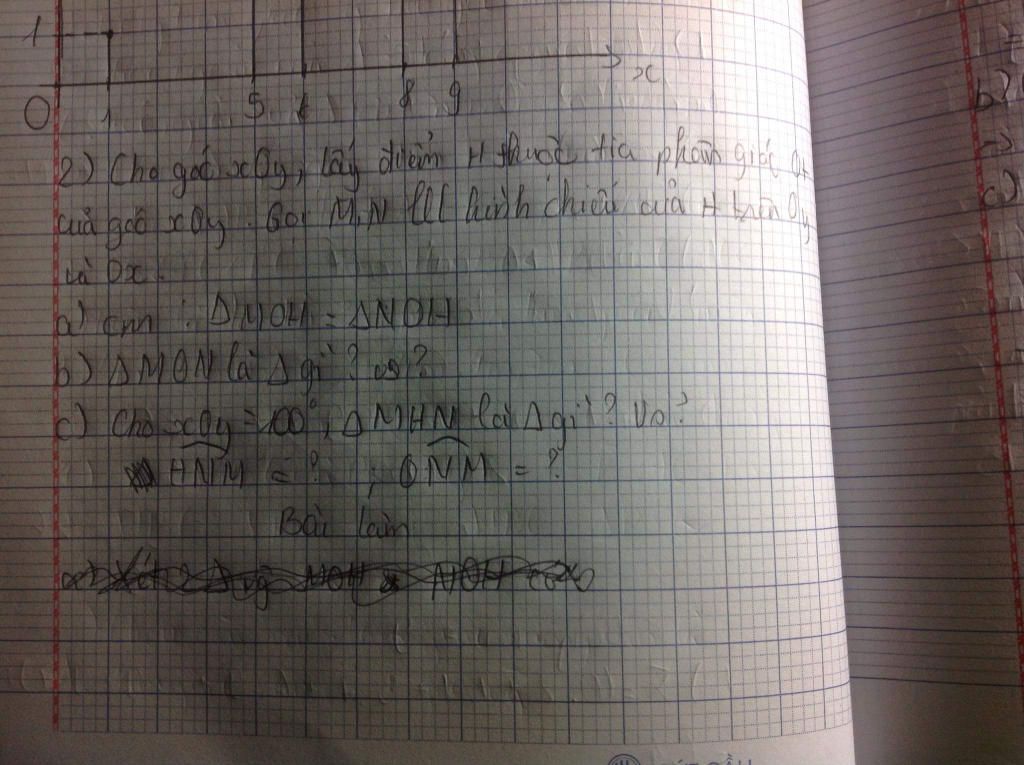 1
x
0 1 5 8 9
2) Cho góc xOy, lấy điểm H thuộc tia phân giác Ot
của góc xOy. Gọi M, N lll hình chiếu của H trên Oy
và Ox.
a) cm : ΔMOH = ΔNOH
b) ΔMON là Δ gì? vs?
c) Cho xOy = 100°, ΔMHN là Δ gì? Vs?
HNM = ? ; ONM = ?
Bài làm
b)
c)